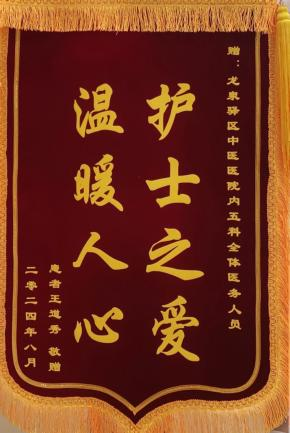 赠：龙泉驿区中医医院内五科全体医务人员
护士之爱
温暖人心
患者王道秀 敬赠
二零二四年八月